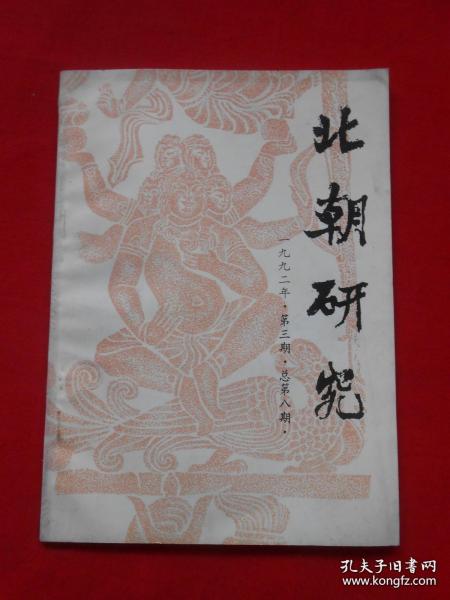 北朝研究
一九九二年·第三期·总第八期·
孔夫子旧书网
www.kongfz.com